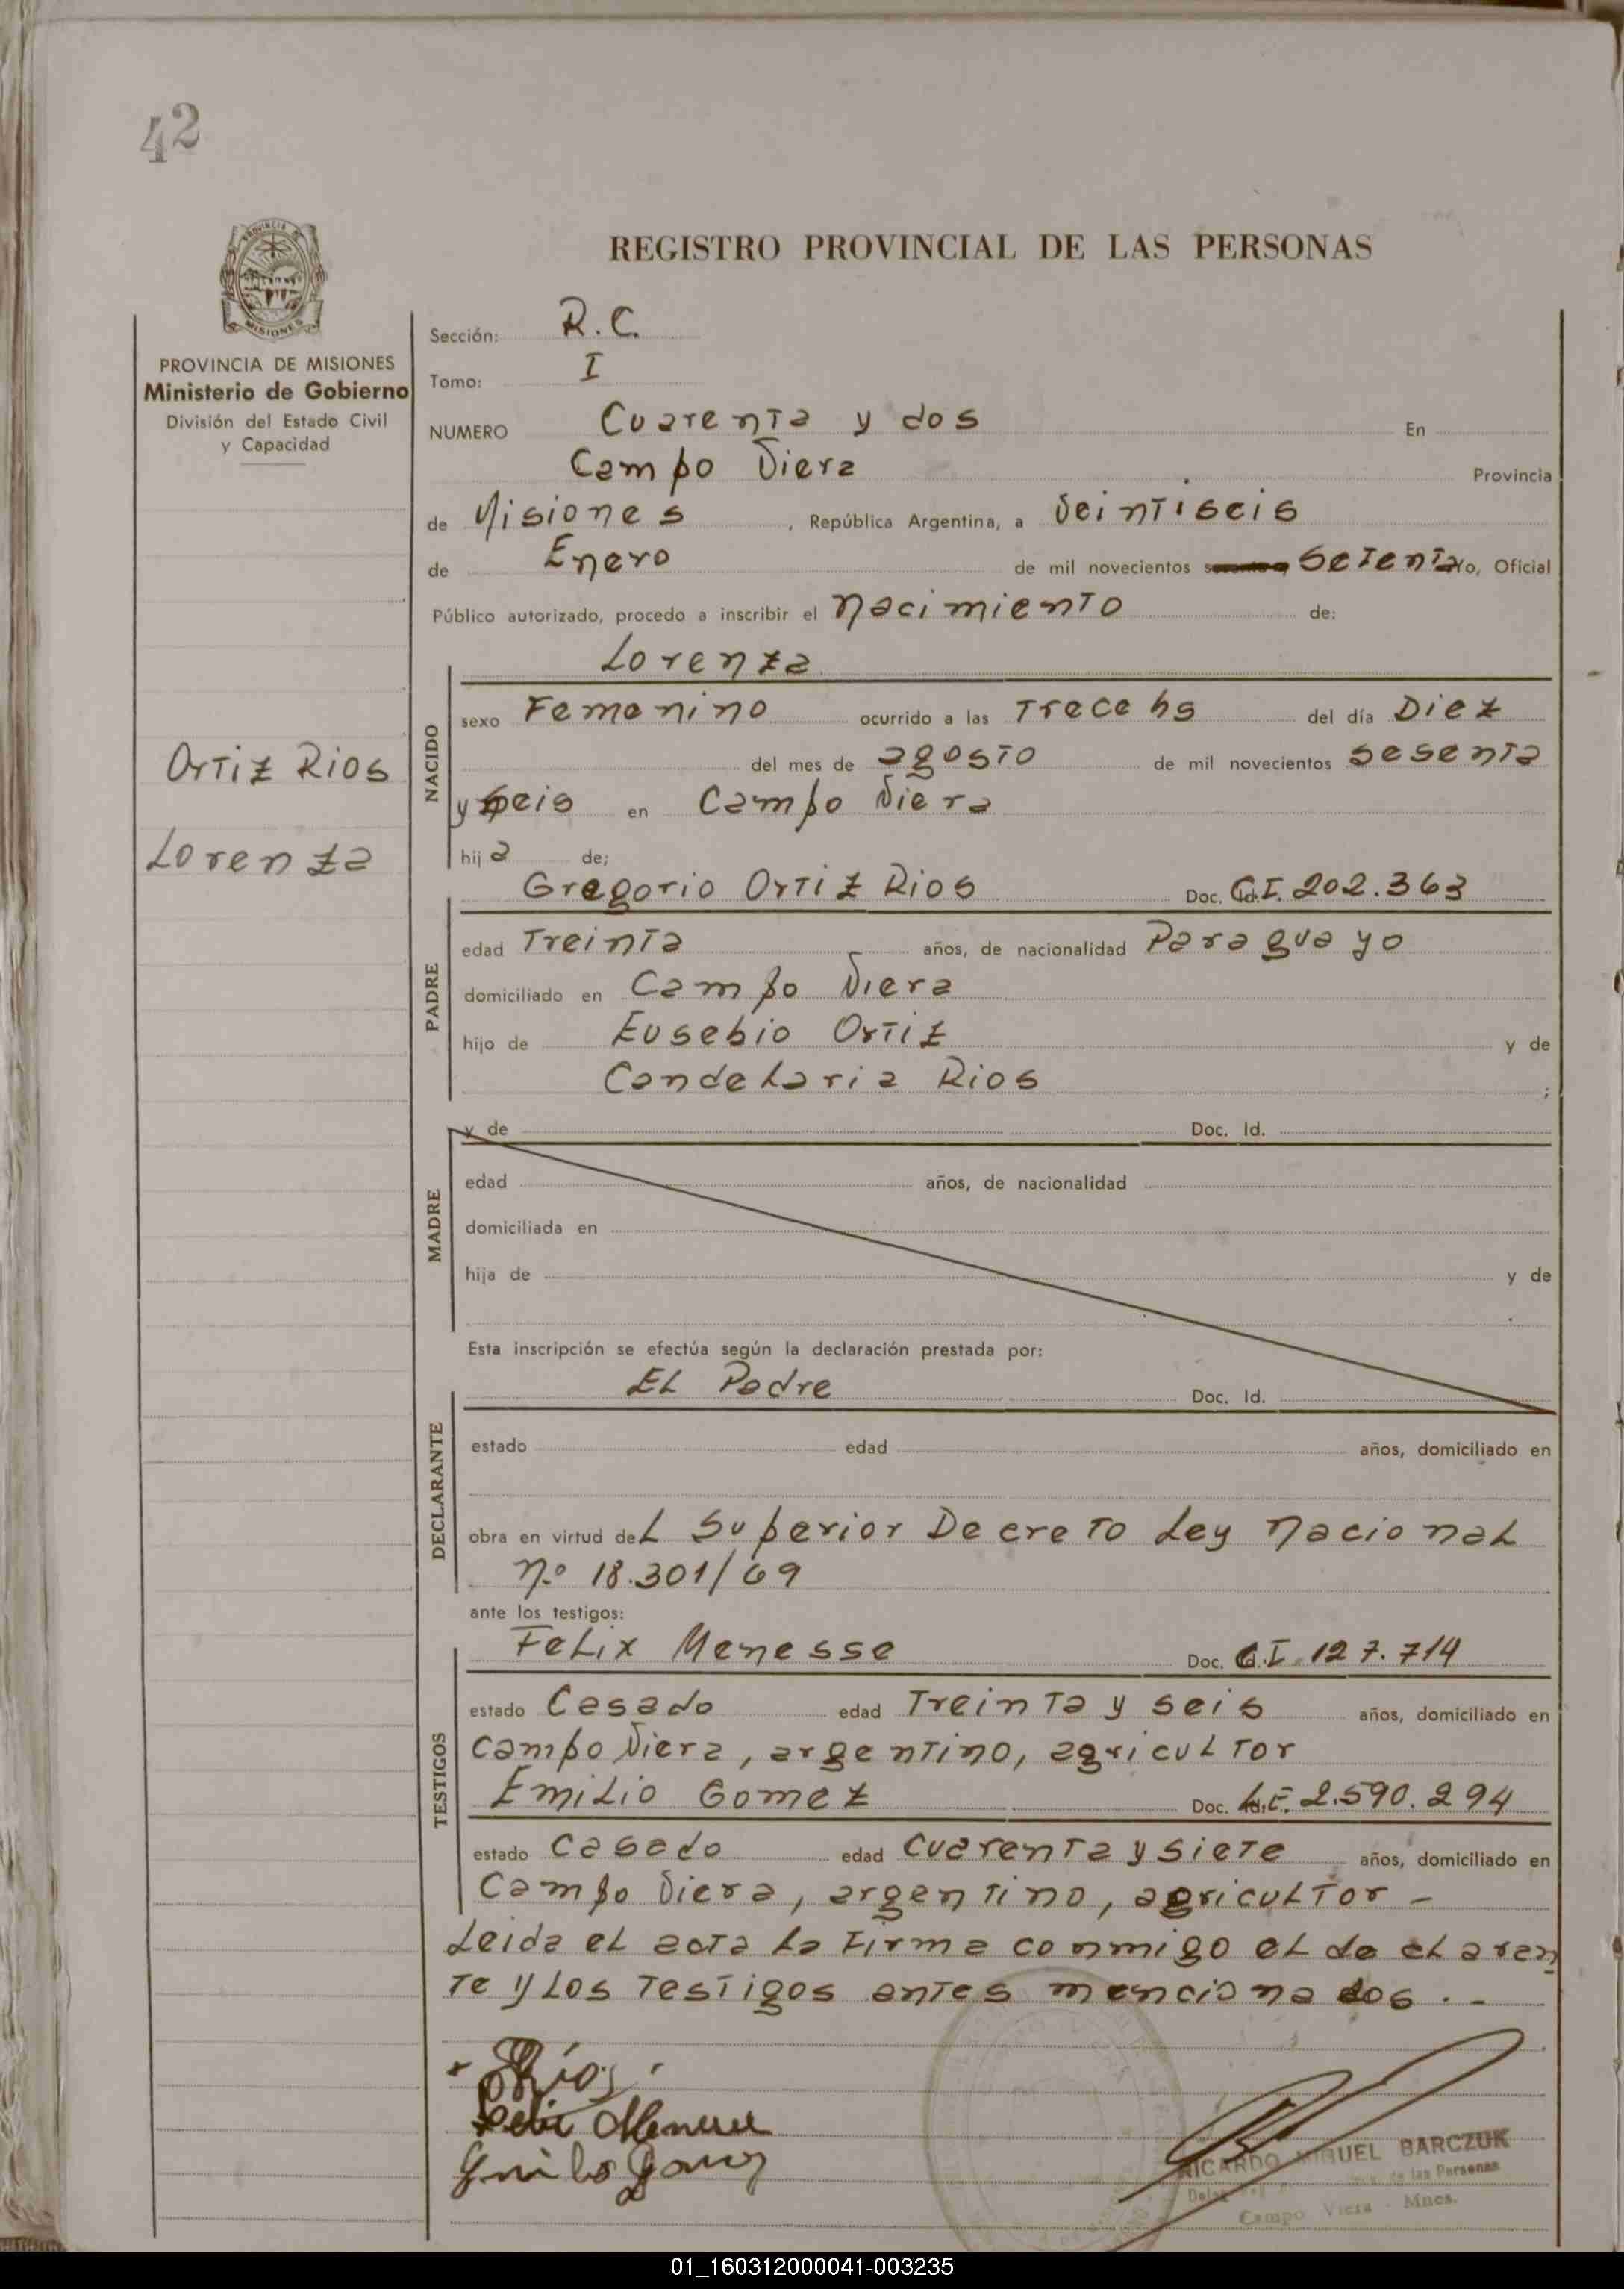 42
PROVINCIA DE
MISIONES
PROVINCIA DE MISIONES
Ministerio de Gobierno
División del Estado Civil
y Capacidad
Ortiz Rios
Lorenza
REGISTRO PROVINCIAL DE LAS PERSONAS
Sección: R.C.
Tomo: I
NUMERO Cuarenta y dos En
Campo Viera Provincia
de Misiones, República Argentina, a Veintiseis
de Enero de mil novecientos Setenta Yo, Oficial
Público autorizado, procedo a inscribir el nacimiento de:
Lorenza
NACIDO
sexo Femenino ocurrido a las Trece hs del día Diez
del mes de agosto de mil novecientos sesenta
y seis en Campo Viera
hija de;
Gregorio Ortiz Rios Doc. C.I. 202.363
PADRE
edad Treinta años, de nacionalidad Paraguayo
domiciliado en Campo Viera
hijo de Eusebio Ortiz y de
Candelaria Rios ;
y de Doc. Id.
MADRE
edad años, de nacionalidad
domiciliada en
hija de y de
Esta inscripción se efectúa según la declaración prestada por:
El Padre Doc. Id.
DECLARANTE
estado edad años, domiciliado en
obra en virtud del Superior Decreto Ley nacional
n.º 18.301/69
ante los testigos:
Felix Menesse Doc. C.I. 127.714
TESTIGOS
estado Casado edad Treinta y seis años, domiciliado en
Campo Viera, argentino, agricultor
Emilio Gomez Doc. L.E. 2.590.294
estado Casado edad Cuarenta y siete años, domiciliado en
Campo Viera, argentino, agricultor -
Leida el acta la firma conmigo el declaren
te y los Testigos antes mencionados . -
Rios
RICARDO MIGUEL BARCZUK
de las Personas
Campo Viera - Mnes.
01_160312000041-003235